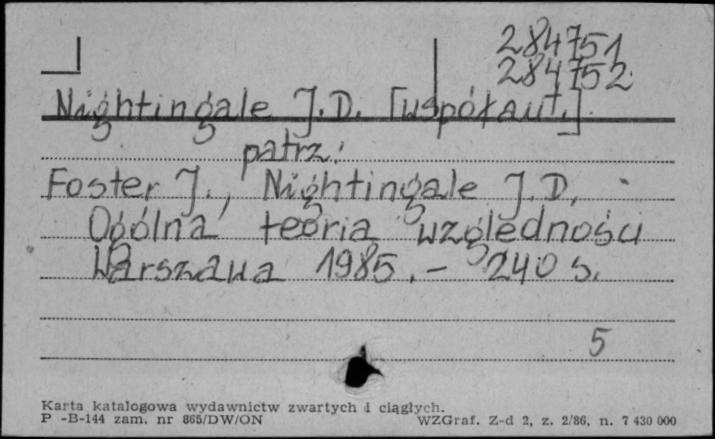 284751
284752
Nightingale J.D. [współaut.]
patrz:
Foster J., Nightingale J.D.
Ogólna teoria względności
Warszawa 1985. – 240 s.
5
Karta katalogowa wydawnictw zwartych i ciągłych.
P -B-144 zam. nr 865/DW/ON WZGraf. Z-d 2, z. 2/86, n. 7 430 000